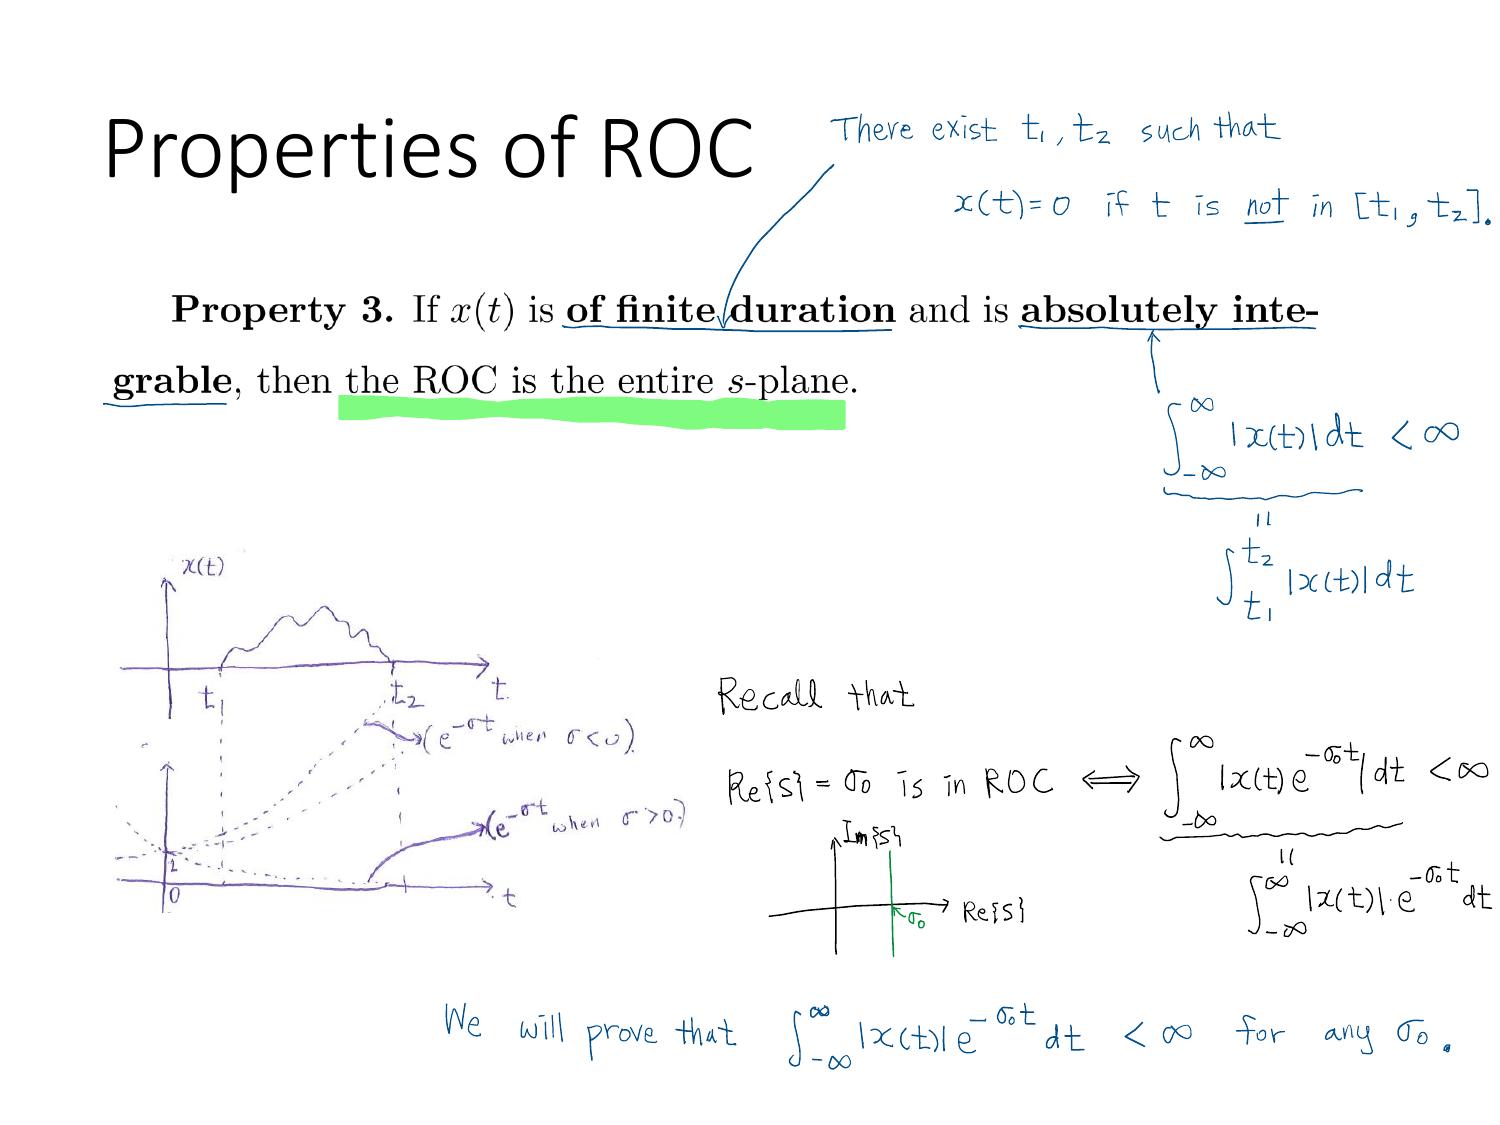 Properties of ROC
There exist t₁, t₂ such that
x(t)=0 if t is not in [t₁, t₂].
Property 3. If x(t) is of finite duration and is absolutely inte-
grable, then the ROC is the entire s-plane.
∫_{-∞}^{∞} |x(t)|dt < ∞
=
∫_{t₁}^{t₂} |x(t)|dt
x(t)
t₁ t₂ t
(e^{-σt} when σ<0)
(e^{-σt} when σ>0)
1
0 t
Recall that
Re{s} = σ₀ is in ROC ⟺ ∫_{-∞}^{∞} |x(t) e^{-σ₀t}| dt < ∞
=
∫_{-∞}^{∞} |x(t)|·e^{-σ₀t} dt
Im{s}
Re{s}
σ₀
We will prove that ∫_{-∞}^{∞} |x(t)| e^{-σ₀t} dt < ∞ for any σ₀.